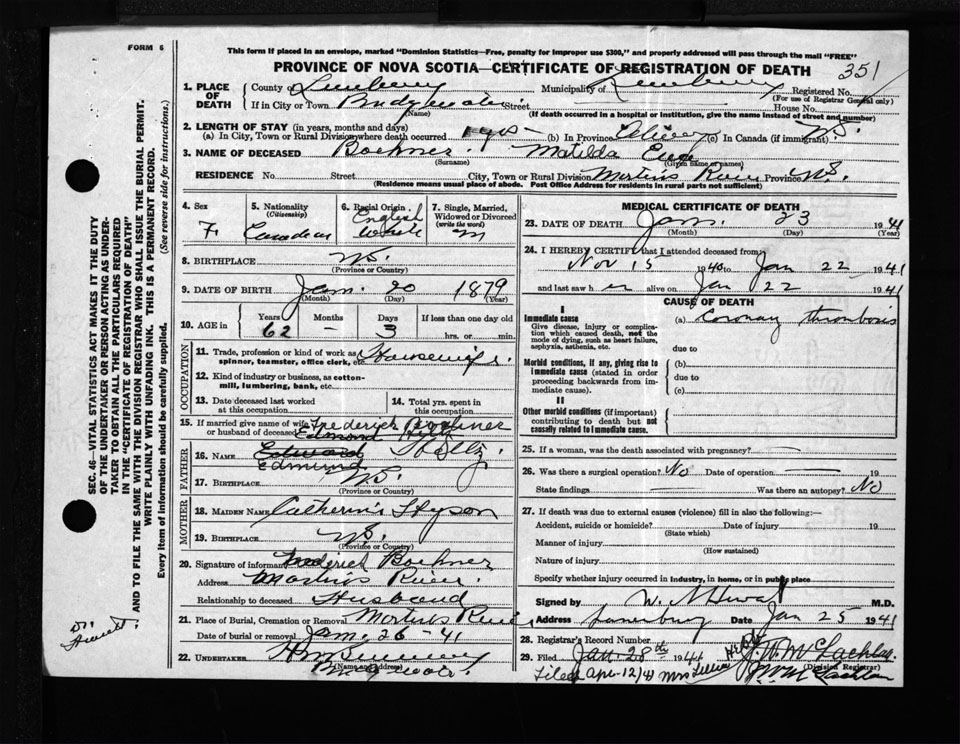 FORM 6
This form if placed in an envelope, marked "Dominion Statistics—Free, penalty for improper use $300," and properly addressed will pass through the mail "FREE"
PROVINCE OF NOVA SCOTIA—CERTIFICATE OF REGISTRATION OF DEATH
351
1. PLACE OF DEATH
County of Lunenburg Municipality of Lunenburg Registered No.
(For use of Registrar General only)
If in City or Town Bridgewater Street House No.
(Name) (If death occurred in a hospital or institution, give the name instead of street and number)
2. LENGTH OF STAY (in years, months and days)
(a) In City, Town or Rural Division where death occurred (b) In Province (c) In Canada (if immigrant) N.S.
3. NAME OF DECEASED Boehner Matilda
(Surname) (Given name or names)
RESIDENCE No. Street City, Town or Rural Division Martins River Province N.S.
(Residence means usual place of abode. Post Office Address for residents in rural parts not sufficient)
4. Sex F
5. Nationality (Citizenship) Canadian
6. Racial Origin English White
7. Single, Married, Widowed or Divorced (write the word) M
8. BIRTHPLACE N.S.
(Province or Country)
9. DATE OF BIRTH Jan. 20 1879
(Month) (Day) (Year)
10. AGE in Years Months Days If less than one day
62 – 3 hrs. or min.
OCCUPATION
11. Trade, profession or kind of work as spinner, teamster, office clerk, etc. Housewife.
12. Kind of industry or business, as cotton-mill, lumbering, bank, etc.
13. Date deceased last worked at this occupation
14. Total yrs. spent in this occupation
15. If married give name of wife or husband of deceased Frederick Boehner
Edmond
FATHER
16. NAME Edward
Edmund
17. BIRTHPLACE N.S.
(Province or Country)
MOTHER
18. MAIDEN NAME Catherine Hyson
19. BIRTHPLACE N.S.
(Province or Country)
20. Signature of informant Frederick Boehner
Address Martins River.
Relationship to deceased Husband
21. Place of Burial, Cremation or Removal Martins River
Date of burial or removal Jan. 26 - 41
22. UNDERTAKER
(Name and Address)
Bridgewater
MEDICAL CERTIFICATE OF DEATH
23. DATE OF DEATH Jan. 23 1941
(Month) (Day) (Year)
24. I HEREBY CERTIFY that I attended deceased from
Nov 15 1940 to Jan 22 1941
and last saw her alive on Jan 22 1941
CAUSE OF DEATH
I
Immediate cause
Give disease, injury or complication which caused death, not the mode of dying, such as heart failure, asphyxia, asthenia, etc.
(a) Coronary thrombosis
due to
Morbid conditions, if any, giving rise to immediate cause (stated in order proceeding backwards from immediate cause).
(b)
due to
(c)
II
Other morbid conditions (if important) contributing to death but not causally related to immediate cause.
25. If a woman, was the death associated with pregnancy?
26. Was there a surgical operation? No Date of operation 19
State findings Was there an autopsy? No
27. If death was due to external causes (violence) fill in also the following:—
Accident, suicide or homicide? Date of injury 19
(State which)
Manner of injury
(How sustained)
Nature of injury
Specify whether injury occurred in industry, in home, or in public place
Signed by M.D.
Address Lunenburg Date Jan 25 1941
28. Registrar's Record Number
29. Filed Jan. 28th 1941
(Division Registrar)
Filed Apr-12/41 Mrs
SEC. 46—VITAL STATISTICS ACT MAKES IT THE DUTY
OF THE UNDERTAKER OR PERSON ACTING AS UNDERTAKER TO OBTAIN ALL THE PARTICULARS REQUIRED
IN THE "CERTIFICATE OF REGISTRATION OF DEATH"
AND TO FILE THE SAME WITH THE DIVISION REGISTRAR WHO SHALL ISSUE THE BURIAL PERMIT.
WRITE PLAINLY WITH UNFADING INK. THIS IS A PERMANENT RECORD.
Every item of information should be carefully supplied. (See reverse side for instructions.)
Dr.